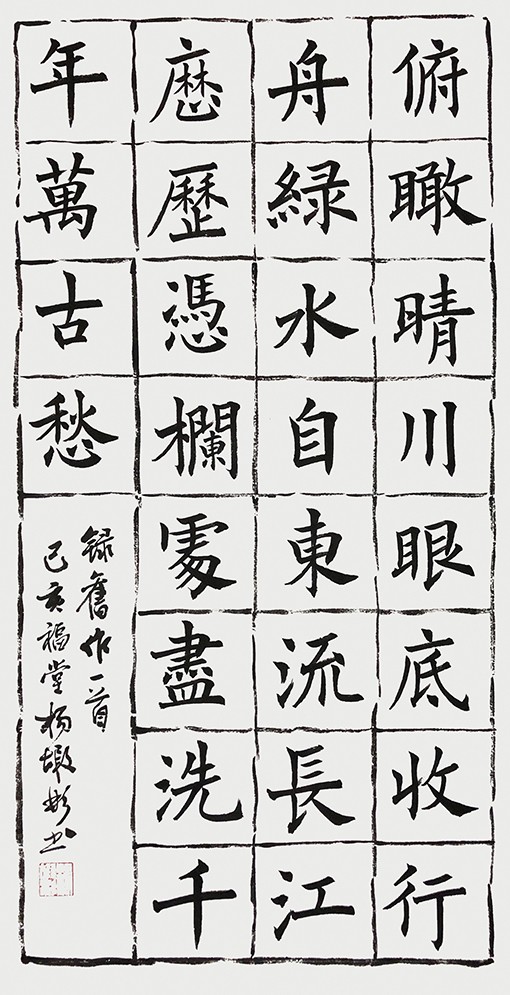 俯瞰晴川眼底收行
舟綠水自東流長江
歷歷憑欄處盡洗千
年萬古愁
録舊作一首
己亥福堂楊彬书